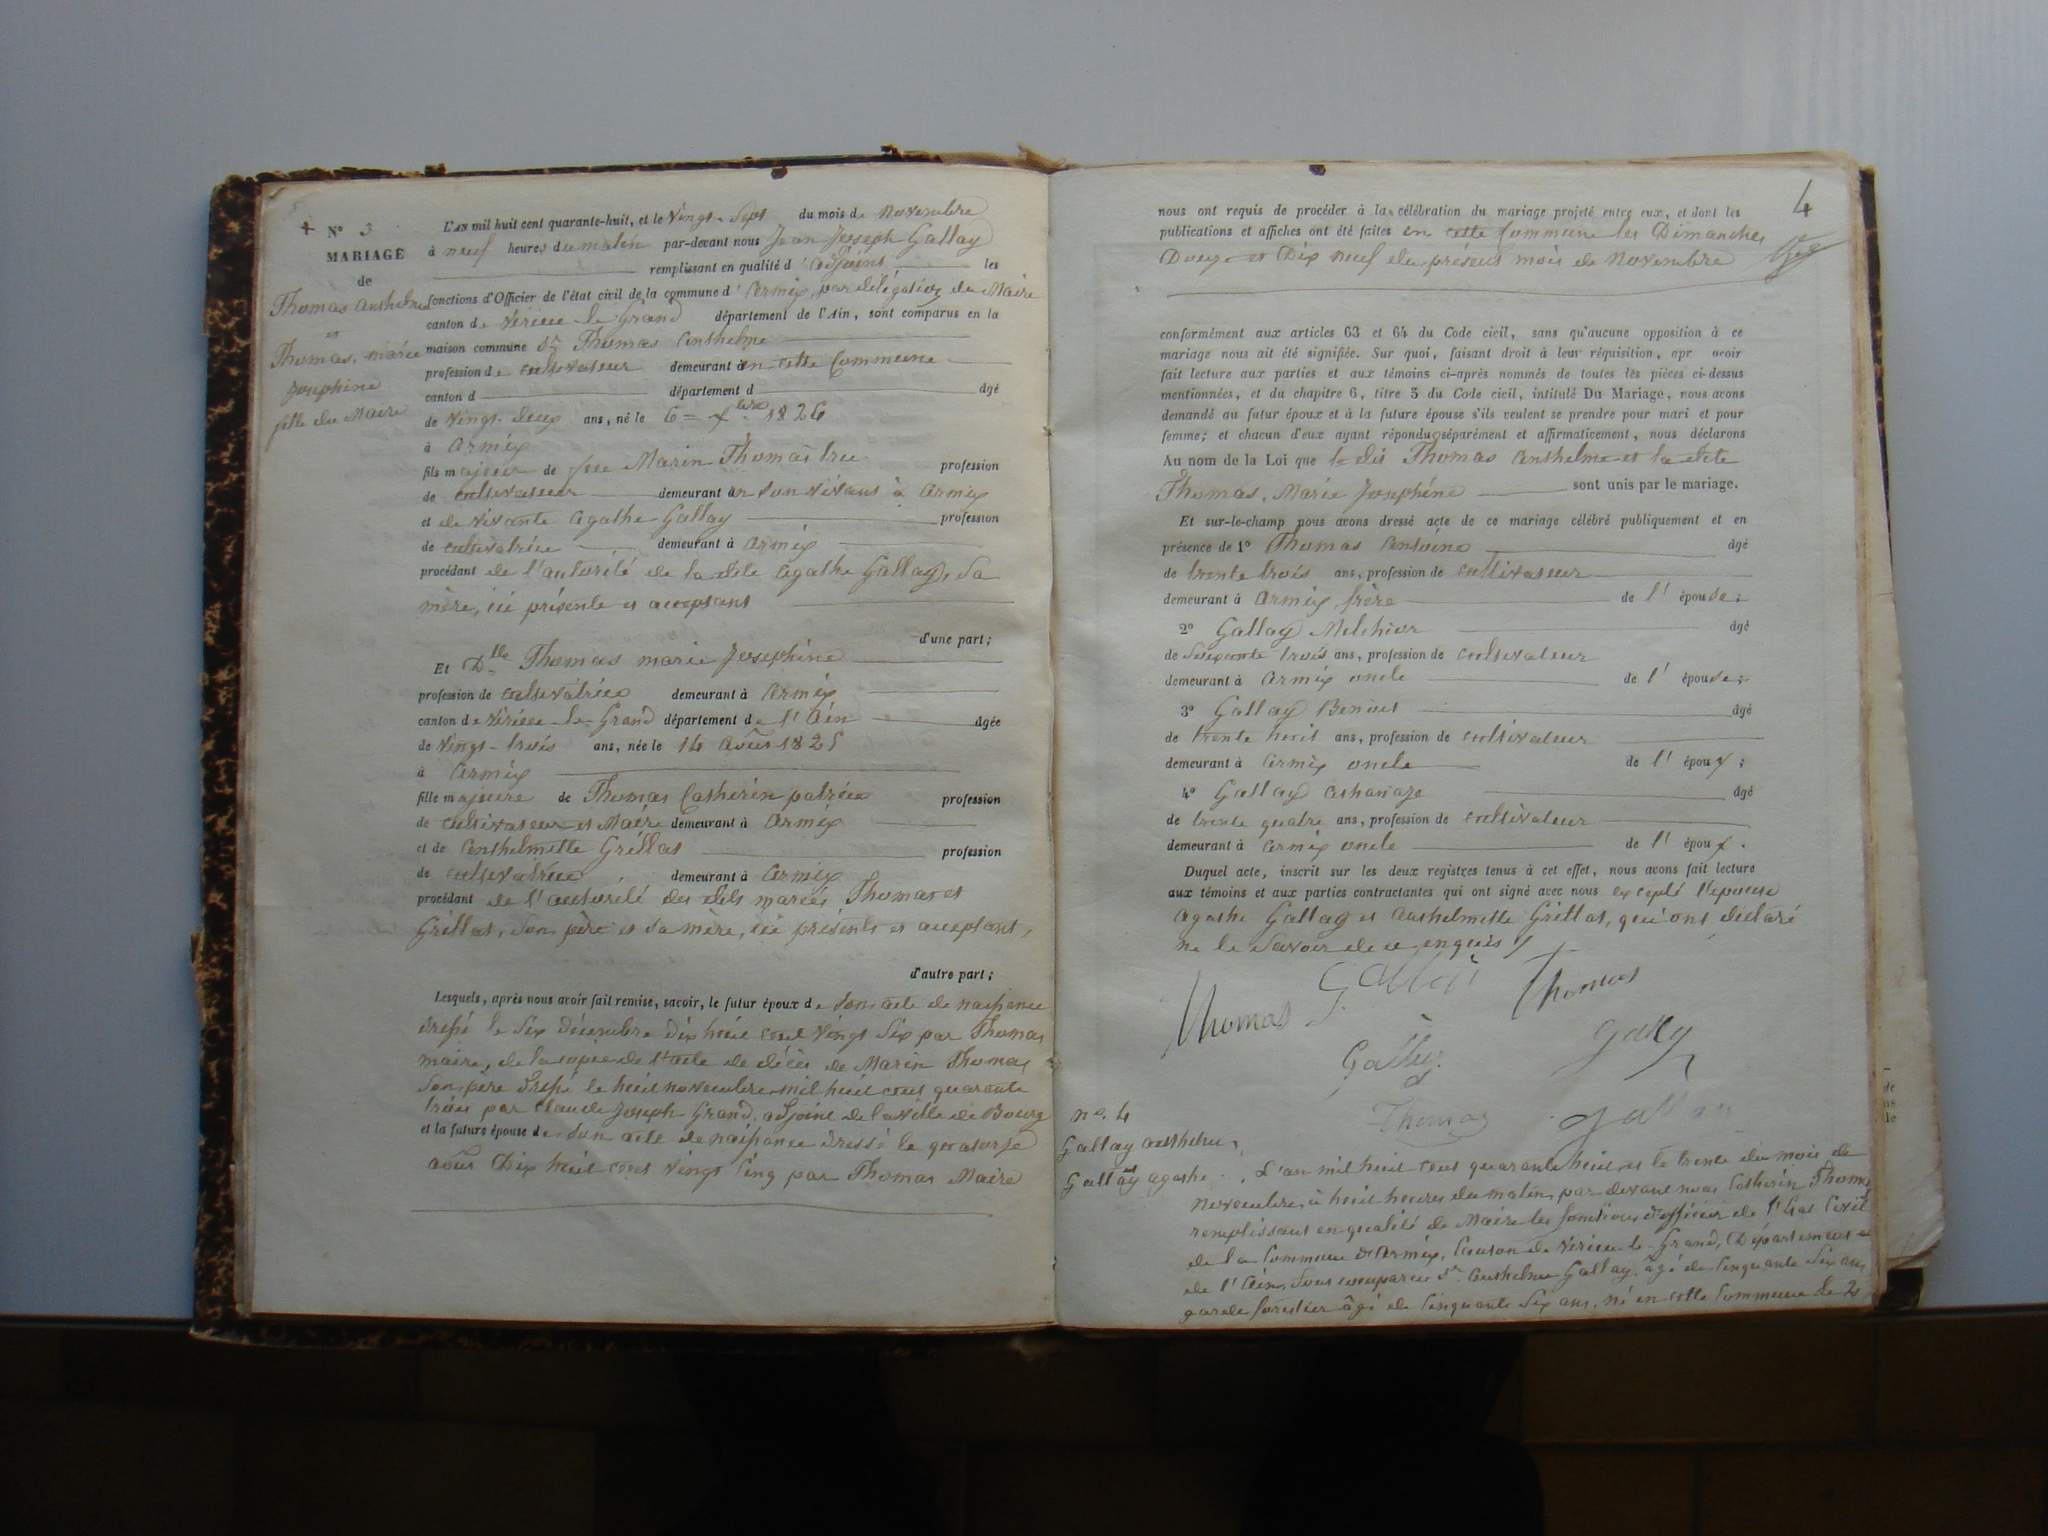 N° 3
MARIAGE
de
Thomas anthelme
et
Thomas, marie
Josephine
fille du Maire
L'AN mil huit cent quarante-huit, et le vingt-sept du mois de novembre
à neuf heures du matin par-devant nous Jean Joseph Gallay
remplissant en qualité d'adjoint les
fonctions d'Officier de l'état civil de la commune d'armix, par délégation du Maire
canton de Virieu-le-Grand département de l'Ain, sont comparus en la
maison commune Sr Thomas anthelme
profession de cultivateur demeurant en cette Commune
canton d département d âgé
de vingt-deux ans, né le 6 = xbre 1826
à armix
fils majeur de feu Marin Thomas profession
de cultivateur demeurant en son vivant à armix
et de vivante agathe Gallay profession
de cultivatrice demeurant à armix
procédant de l'autorité de la dite agathe Gallay, sa
mère, ici présente et acceptant
d'une part;
Et Dlle Thomas marie Josephine
profession de cultivatrice demeurant à armix
canton de Virieu-le-Grand département de l'Ain âgée
de vingt-trois ans, née le 14 août 1825
à armix
fille majeure de Thomas Catherin patrice profession
de cultivateur et Maire demeurant à armix
et de anthelmette Grillat profession
de cultivatrice demeurant à armix
procédant de l'autorité des dits mariés Thomas et
Grillat, son père et sa mère, ici présents et acceptant,
d'autre part;
Lesquels, après nous avoir fait remise, savoir, le futur époux de son acte de naissance
dressé le six décembre dix huit cent vingt six par Thomas
maire, de la copie de l'acte de décès de Marin Thomas
son père dressé le huit novembre mil huit cent quarante
trois par Claude Joseph Grand, adjoint de la ville de Bourg
et la future épouse de son acte de naissance dressé le quatorze
août Dix huit cent vingt cinq par Thomas Maire
4
nous ont requis de procéder à la célébration du mariage projeté entre eux, et dont les
publications et affiches ont été faites en cette Commune les Dimanches
Douze et Dix neuf du présent mois de novembre
conformément aux articles 63 et 64 du Code civil, sans qu'aucune opposition à ce
mariage nous ait été signifiée. Sur quoi, faisant droit à leur réquisition, apr avoir
fait lecture aux parties et aux témoins ci-après nommés de toutes les pièces ci-dessus
mentionnées, et du chapitre 6, titre 5 du Code civil, intitulé Du Mariage, nous avons
demandé au futur époux et à la future épouse s'ils veulent se prendre pour mari et pour
femme; et chacun d'eux ayant répondu séparément et affirmativement, nous déclarons
Au nom de la Loi que le dit Thomas anthelme et la dite
Thomas, Marie Josephine sont unis par le mariage.
Et sur-le-champ nous avons dressé acte de ce mariage célébré publiquement et en
présence de 1° Thomas antoine âgé
de trente trois ans, profession de cultivateur
demeurant à armix frère de l'épouse;
2° Gallay Melchior âgé
de soixante trois ans, profession de cultivateur
demeurant à armix oncle de l'épouse;
3° Gallay Benoit âgé
de trente huit ans, profession de cultivateur
demeurant à armix oncle de l'époux;
4° Gallay athanaze âgé
de trente quatre ans, profession de cultivateur
demeurant à armix oncle de l'époux.
Duquel acte, inscrit sur les deux registres tenus à cet effet, nous avons fait lecture
aux témoins et aux parties contractantes qui ont signé avec nous excepté l'épouse
agathe Gallay et anthelmette Grillat, qui ont déclaré
ne le savoir de ce enquis
Thomas Thomas
Gally
Thomas
n°. 4
Gallay anthelme
et
Gallay agathe
L'an mil huit cent quarante huit et le trente du mois de
novembre, à huit heures du matin, par devant nous Catherin Thomas
remplissant en qualité de Maire les fonctions d'officier de l'état Civil
de la Commune d'armix, Canton de Virieu-le-Grand, Département
de l'Ain, sont comparus Sr. anthelme Gallay, âgé de cinquante six ans
garde forestier âgé de cinquante six ans, né en cette Commune le 2